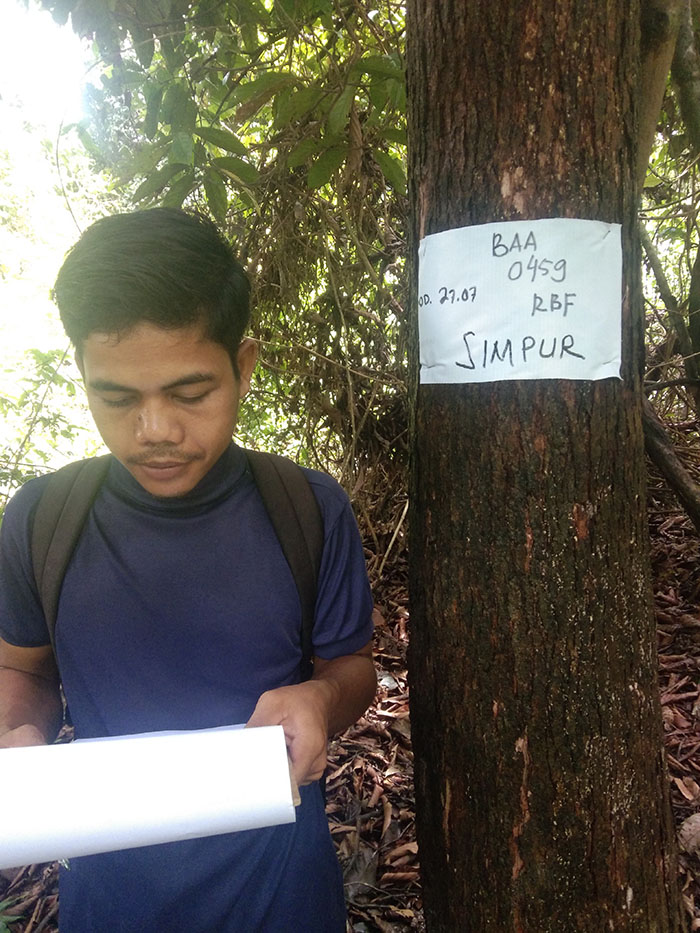 BAA
0459
OD. 27.07
RBF
SIMPUR